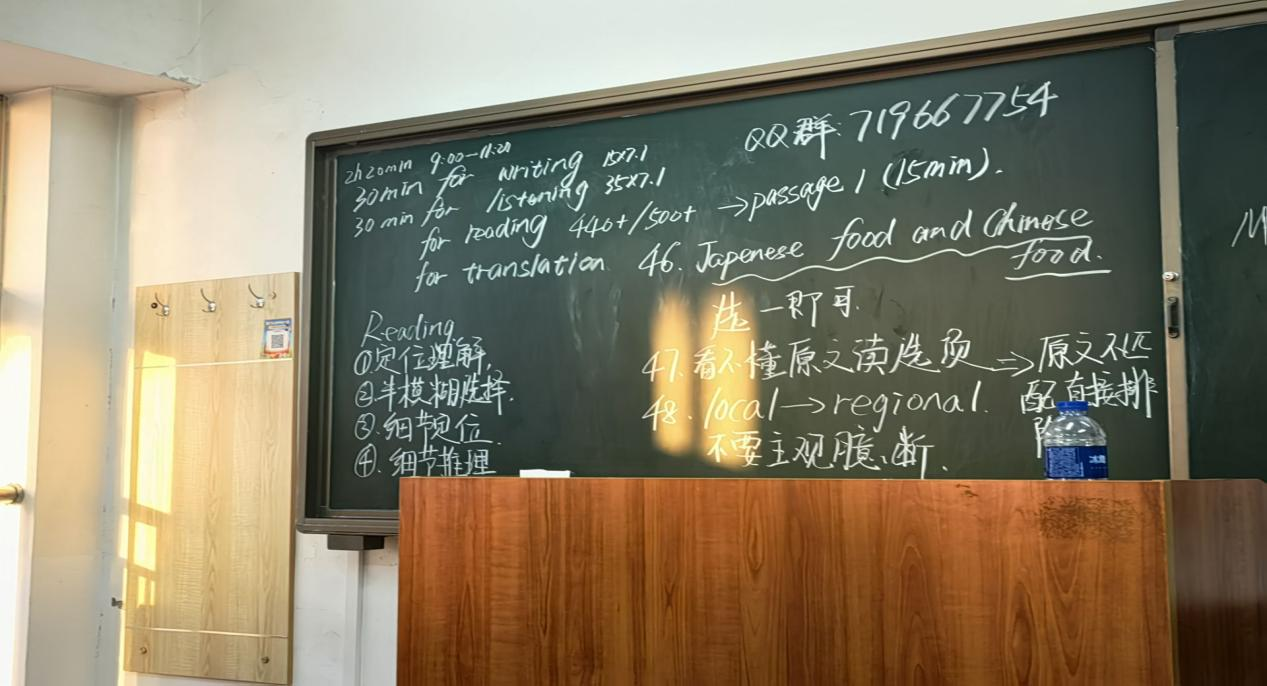 2h20min 9:00-11:20
30min for writing 15x7.1
30 min for listening 35x7.1
for reading 440+/500+ →passage 1 (15min).
for translation
QQ群:719667754
46. Japenese food and Chinese
food.
选一即可
47.看不懂原文读选项 => 原文不匹
配直接排
48. local→regional.
不要主观臆断.
Reading
①定位理解,
②半模糊选择.
③.细节定位.
④.细节推理